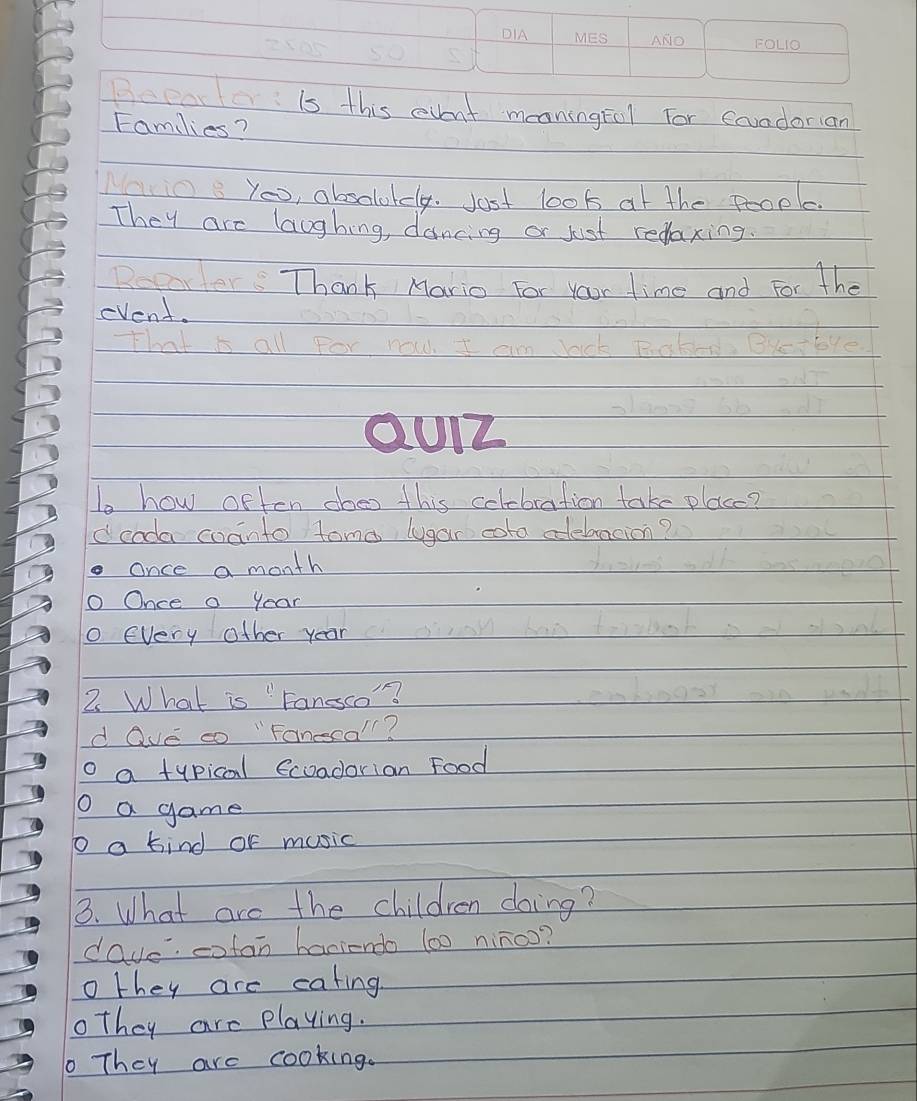 DIA MES AÑO FOLIO
Reporter: Is this event meaningful for Ecuadorian
Families?
Mario: Yes, absolutely. Just look at the people.
They are laughing, dancing or just relaxing.
Reporter: Thank Mario for your time and for the
event.
That is all for now. I am Jack Bye-bye
QUIZ
1. how often does this celebration take place?
¿cada cuánto toma lugar esta celebración?
• Once a month
o Once a year
o Every other year
2. What is "Fanesca"?
¿Qué es "Fanesca"?
o a typical Ecuadorian Food
o a game
o a kind of music
3. What are the children doing?
¿Qué están haciendo los niños?
o they are eating.
o They are Playing.
o They are cooking.